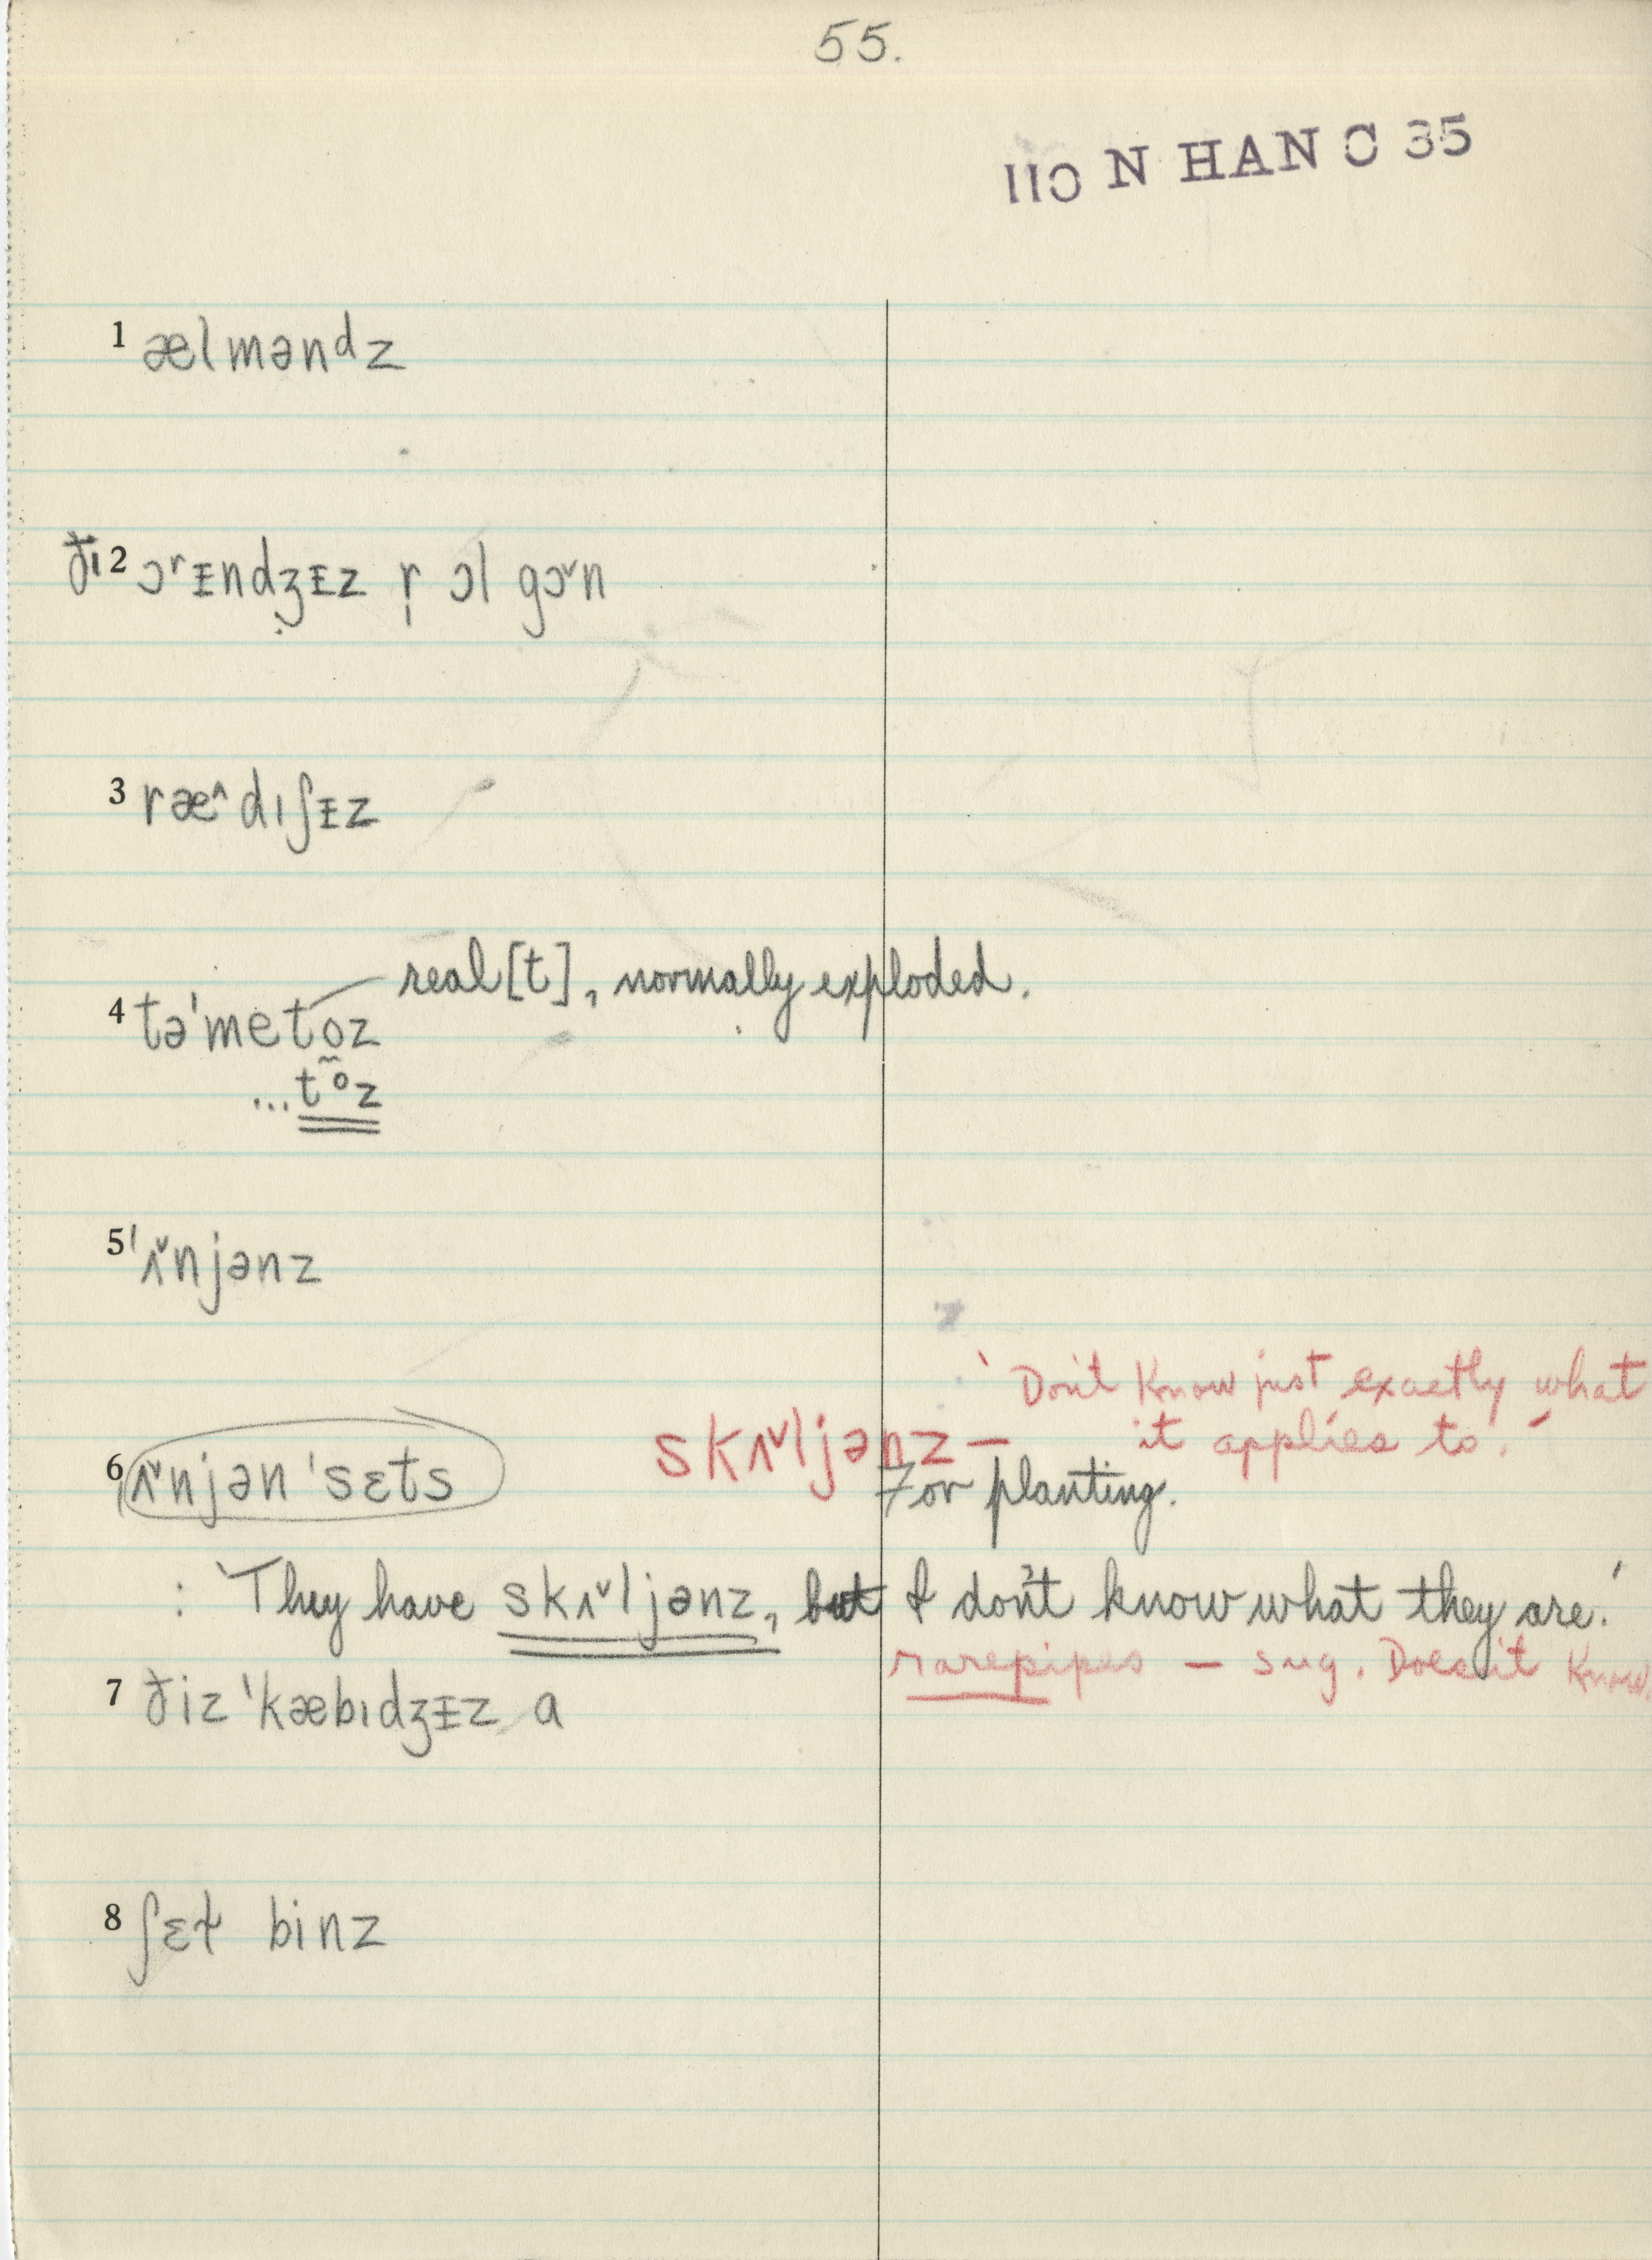 55.
110 N HAN C 35
1 ælməndz
ðɪ 2 ɔʳᵻndʒᵻz r̩ ɔl gɔˇn
3 ræ^dɪʃᵻz
real [t], normally exploded.
4 tə'metoz
...t°z
5 'ʌˇnjənz
'Don't know just exactly what
skʌˇljənz — it applies to.'
6 ʌˇnjən 'sɛts For planting.
: 'They have skʌˇljənz, but I don't know what they are.'
rarepipes — sug. Doesn't know.
7 ðiz 'kæbɪdʒᵻz a
8 ʃɛɫ binz